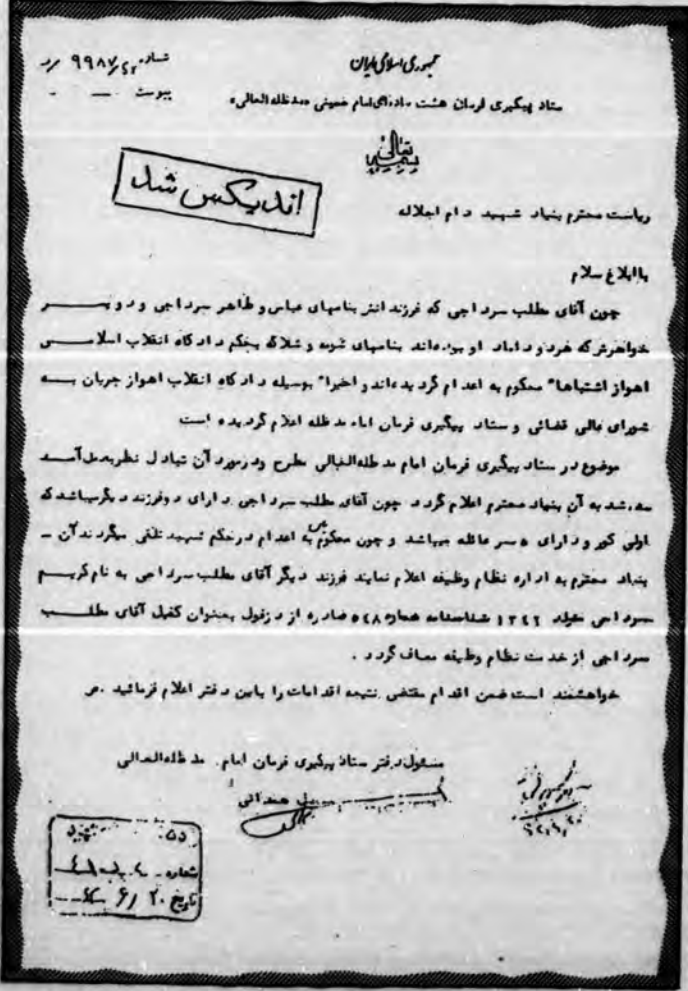 جمهوری اسلامی ایران
شماره ۹۹۸۷
پیوست
ستاد پیگیری فرمان هشت ماده‌ای امام خمینی «مدظله العالی»
بسمه تعالی
اندیکس شد
ریاست محترم بنیاد شهید دام اجلاله
باابلاغ سلام
چون آقای مطلب سراجی که فرزندانش بنامهای عباس و طاهر سراجی و دو پسر
خواهرش که دو داماد او بوده‌اند بنامهای و بحکم دادگاه انقلاب اسلامی
اهواز اشتباها" محکوم به اعدام گردیده‌اند و اخیرا" بوسیله دادگاه انقلاب اهواز جریان به
شورای عالی قضائی و ستاد پیگیری فرمان امام مدظله اعلام گردیده است
موضوع در ستاد پیگیری فرمان امام مدظله‌العالی مطرح و در مورد آن تبادل نظر بعمل آمد
شد به آن بنیاد محترم اعلام گردد چون آقای مطلب سراجی دارای دو فرزند دیگر میباشد که
اولی کور و دارای ۵ سر عائله میباشد و چون محکومین به اعدام در حکم شهید تلقی میگردند آن ـ
بنیاد محترم به اداره نظام وظیفه اعلام نمایند فرزند دیگر آقای مطلب سراجی به نام کریم
سراجی متولد ۱۳۴۲ شناسنامه شماره ۵۴۸ صادره از دزفول بعنوان کفیل آقای مطلب
سراجی از خدمت نظام وظیفه معاف گردد .
خواهشمند است ضمن اقدام مقتضی نتیجه اقدامات را باین دفتر اعلام فرمائید .
مسئول دفتر ستاد پیگیری فرمان امام مدظله‌العالی
همدانی
شماره
تاریخ ۲۰ / ۶ /